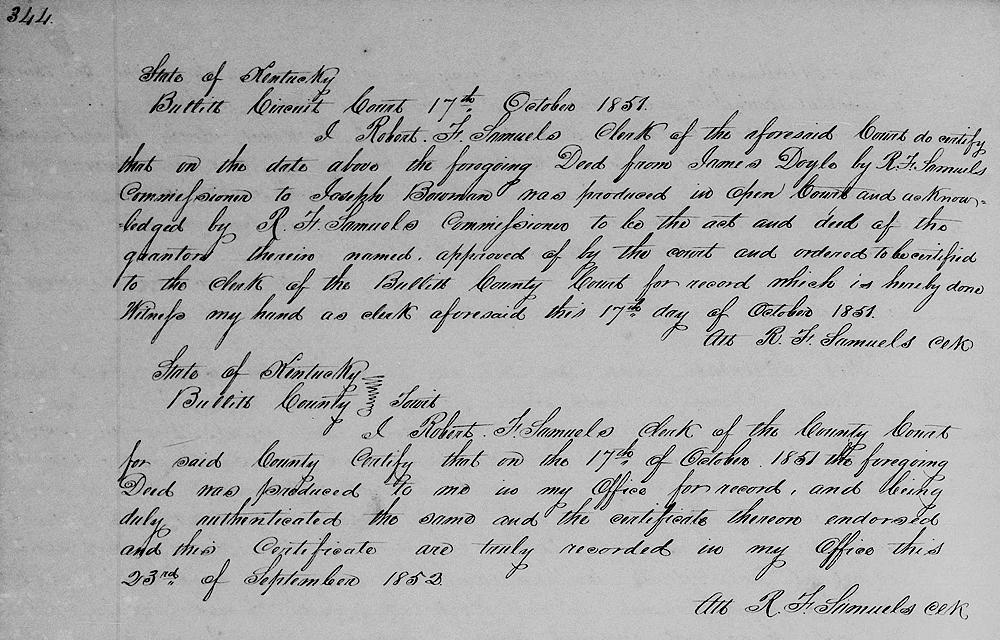 344.
State of Kentucky
Bullitt Circuit Court 17th October 1851.
I Robert. F. Samuels Clerk of the aforesaid Court do certify
that on the date above the foregoing Deed from James Doyle by R. F. Samuels
Commissioner to Joseph Bowman was produced in open Court and acknow=
ledged by R. F. Samuels Commissioner to be the act and deed of the
grantors therein named. approved of by the court and ordered to be certified
to the clerk of the Bullitt County Court for record which is hereby done
Witness my hand as clerk aforesaid this 17th day of October 1851.
Att R. F. Samuels Clk
State of Kentucky
Bullitt County Towit
I Robert. F. Samuels Clerk of the County Court
for said County Certify that on the 17th of October. 1851 the foregoing
Deed was produced to me in my Office for record, and being
duly authenticated the same and the certificate thereon endorsed
and this Certificate are truly recorded in my Office this
23rd of September 1852.
Att R. F. Samuels Clk